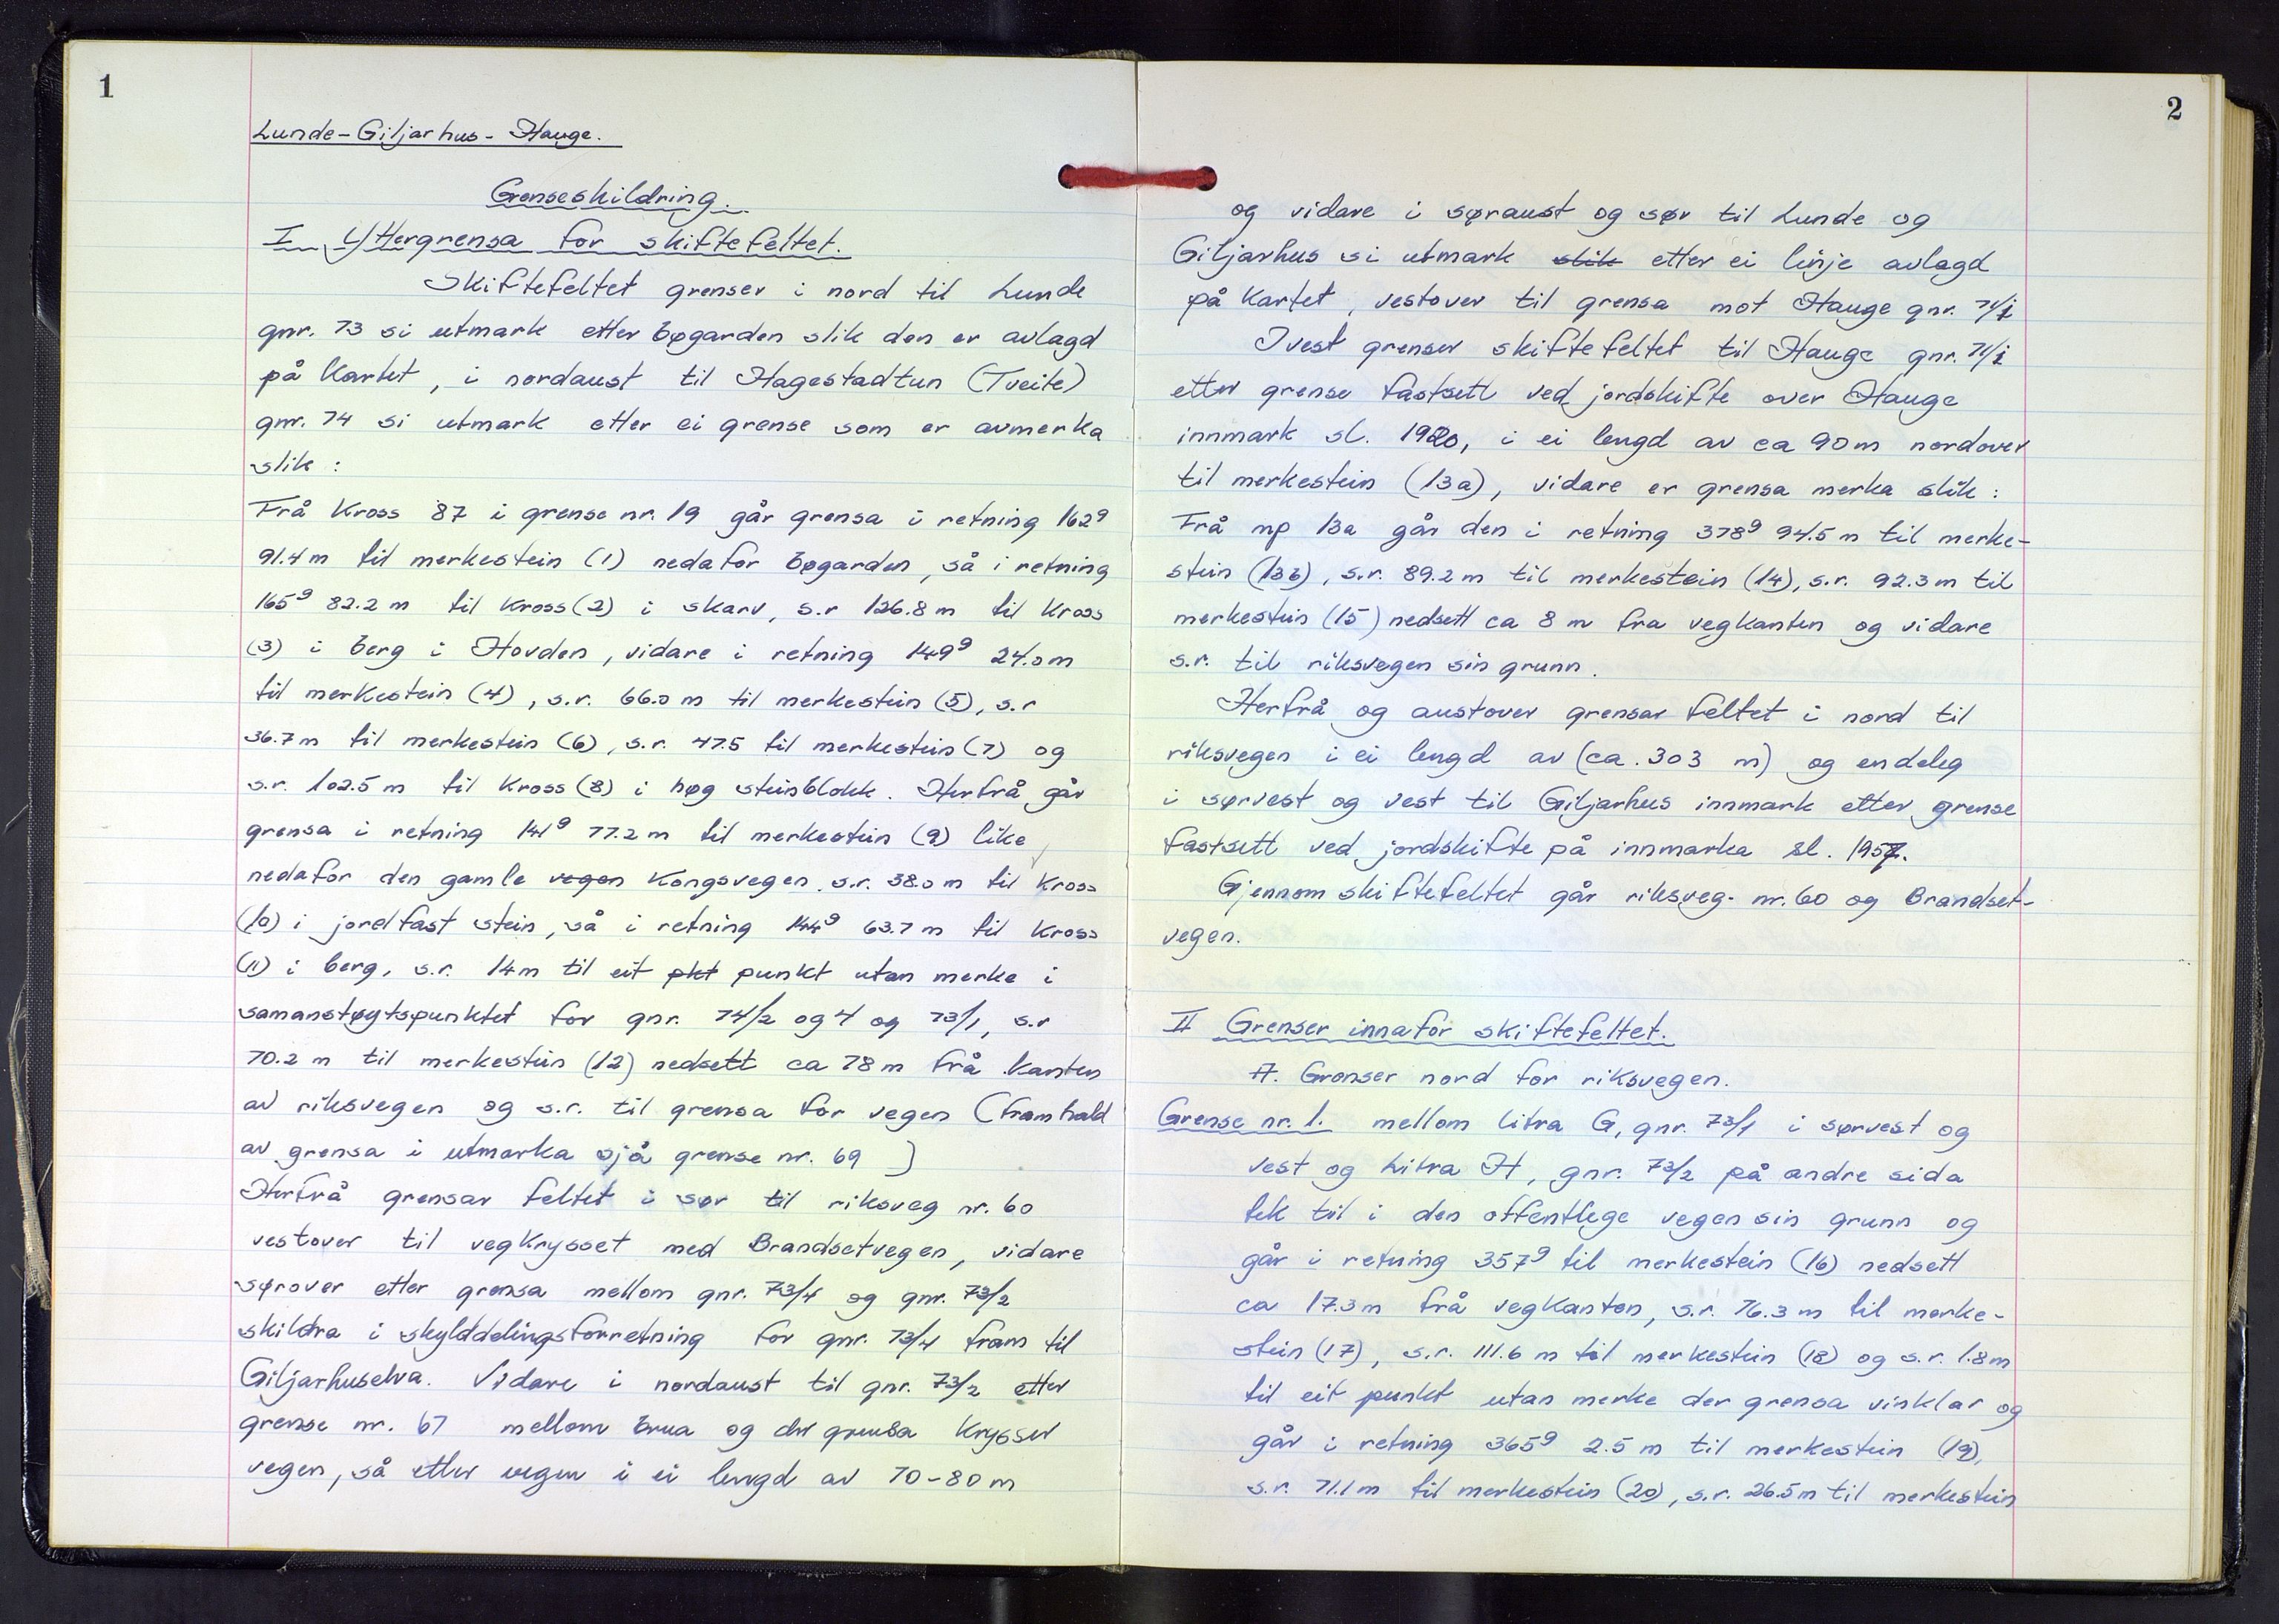 1
Lunde-Giljarhus-Hauge.
Grenseskildring.
I Yttergrensa for skiftefeltet.
Skiftefeltet grenser i nord til Lunde
gnr. 73 si utmark etter bøgarden slik den er avlagd
på kartet, i nordaust til Hagestadtun (Tveite)
gnr. 74 si utmark etter ei grense som er avmerka
slik:
Frå kross 87 i grense nr. 19 går grensa i retning 162g
91.4 m til merkestein (1) nedafor bøgarden, så i retning
165g 82.2 m til kross (2) i skarv, s.r 126.8 m til kross
(3) i berg i Hovden, vidare i retning 149g 24.0 m
til merkestein (4), s.r. 66.0 m til merkestein (5), s.r
36.7 m til merkestein (6), s.r. 47.5 til merkestein (7) og
s.r. 102.5 m til kross (8) i høg steinblokk. Herfrå går
grensa i retning 141g 77.2 m til merkestein (9) like
nedafor den gamle vegen Kongsvegen, s.r. 38.0 m til kross
(10) i jordfast stein, så i retning 144g 63.7 m til kross
(11) i berg, s.r. 14 m til eit pkt punkt utan merke i
samanstøytspunktet for gnr. 74/2 og 4 og 73/1, s.r
70.2 m til merkestein (12) nedsett ca 78 m frå kanten
av riksvegen og s.r. til grensa for vegen (framhald
av grensa i utmarka sjå grense nr. 69 )
Herfrå grensar feltet i sør til riksveg nr. 60
vestover til vegkrysset med Brandsetvegen, vidare
sørover etter grensa mellom gnr. 73/4 og gnr. 73/2
skildra i skylddelingsforretning for gnr. 73/4 fram til
Giljarhuselva. Vidare i nordaust til gnr. 73/2 etter
grense nr. 67 mellom brua og der grensa krysser
vegen, så etter vegen i ei lengd av 70-80 m
2
og vidare i søraust og sør til Lunde og
Giljarhus si utmark slik etter ei linje avlagd
på kartet, vestover til grensa mot Hauge gnr. 71/1
I vest grenser skiftefeltet til Hauge gnr. 71/1
etter grense fastsett ved jordskifte over Hauge
innmark sl. 1920, i ei lengd av ca 90 m nordover
til merkestein (13a), vidare er grensa merka slik:
Frå mp 13a går den i retning 378g 94.5 m til merke-
stein (13b), s.r. 89.2 m til merkestein (14), s.r. 92.3 m til
merkestein (15) nedsett ca 8 m fra vegkanten og vidare
s.r. til riksvegen sin grunn.
Herfrå og austover grensar feltet i nord til
riksvegen i ei lengd av (ca. 303 m) og endeleg
i sørvest og vest til Giljarhus innmark etter grense
fastsett ved jordskifte på innmarka sl. 1957.
Gjennom skiftefeltet går riksveg. nr. 60 og Brandset-
vegen.
II Grenser innafor skiftefeltet.
A. Grenser nord for riksvegen.
Grense nr. 1. mellom litra G, gnr. 73/1 i sørvest og
vest og Litra H, gnr. 73/2 på andre sida
tek til i den offentlege vegen sin grunn og
går i retning 357g til merkestein (16) nedsett
ca 17.3 m frå vegkanten, s.r. 76.3 m til merke-
stein (17), s.r. 111.6 m til merkestein (18) og s.r. 1.8 m
til eit punkt utan merke der grensa vinklar og
går i retning 365g 2.5 m til merkestein (19),
s.r. 71.1 m til merkestein (20), s.r. 26.5 m til merkestein